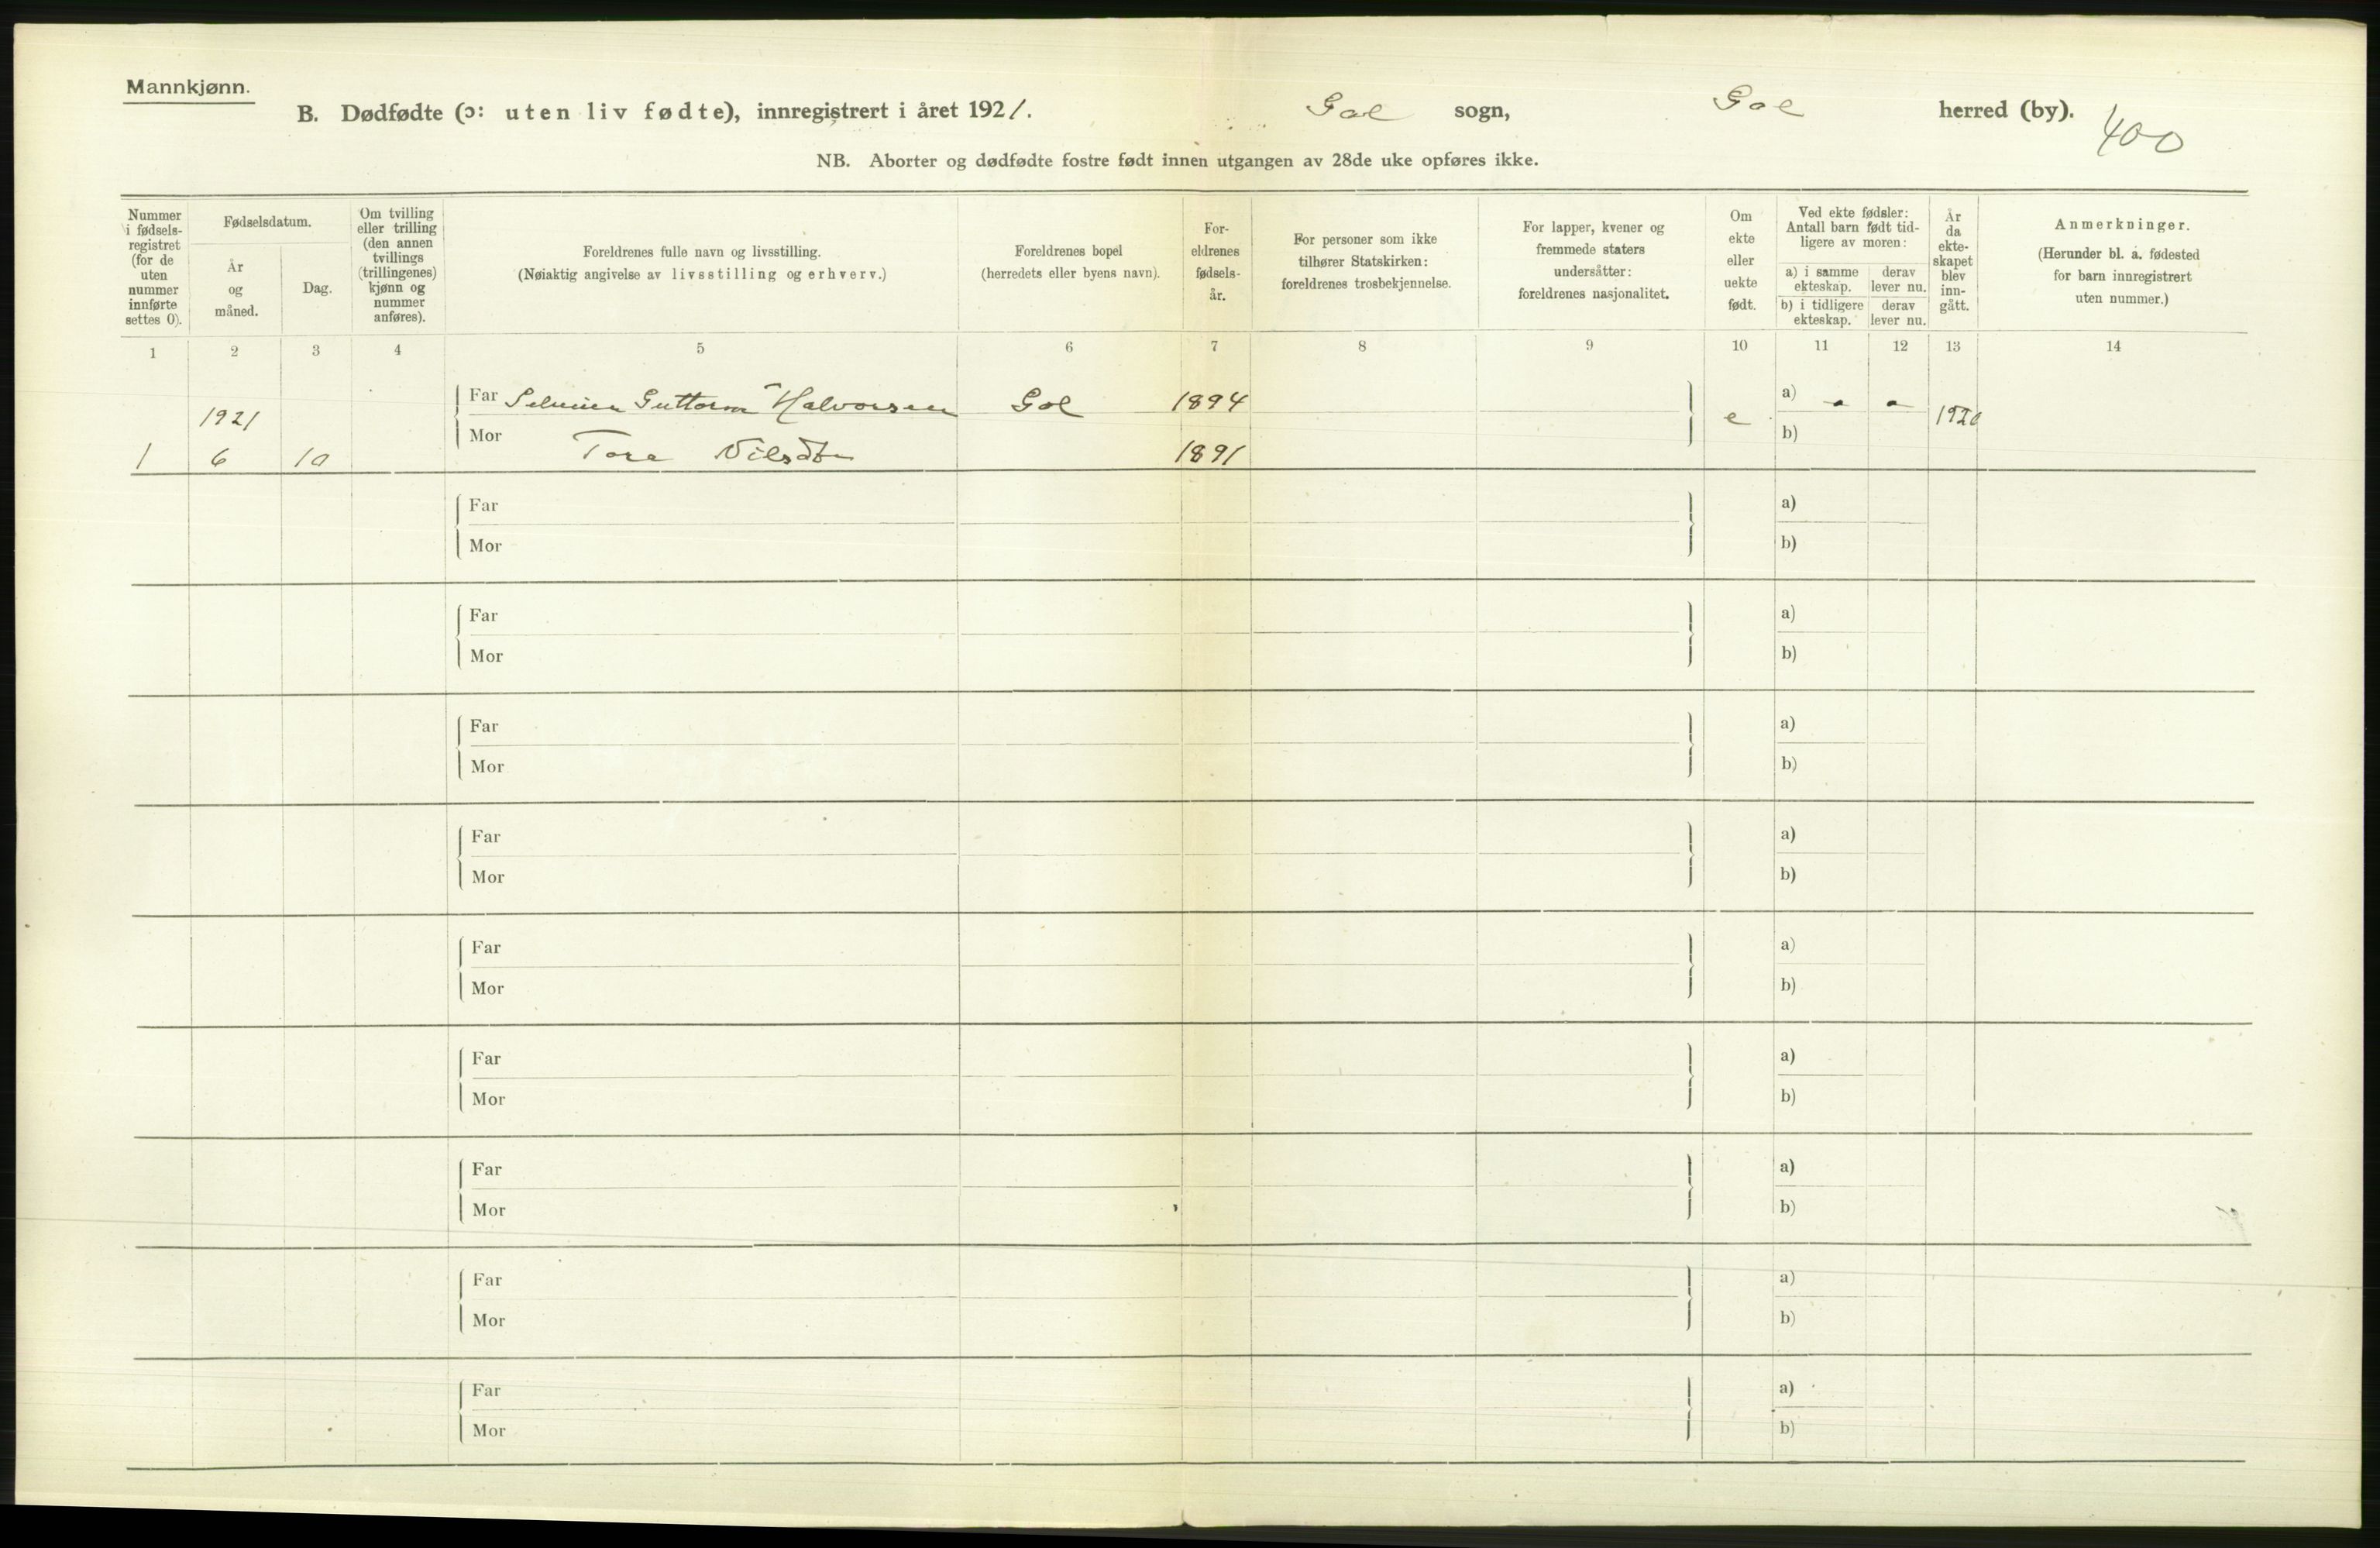 Mannkjønn.
B. Dødfødte (ɔ: uten liv fødte), innregistrert i året 1921. Gol sogn, Gol herred (by).
400
NB. Aborter og dødfødte fostre født innen utgangen av 28de uke opføres ikke.
Nummer i fødsels-registret (for de uten nummer innførte settes 0).
Fødselsdatum.
År og måned.
Dag.
Om tvilling eller trilling (den annen tvillings (trillingenes) kjønn og nummer anføres).
Foreldrenes fulle navn og livsstilling.
(Nøiaktig angivelse av livsstilling og erhverv.)
Foreldrenes bopel
(herredets eller byens navn).
For-eldrenes fødsels-år.
For personer som ikke
tilhører Statskirken:
foreldrenes trosbekjennelse.
For lapper, kvener og
fremmede staters
undersåtter:
foreldrenes nasjonalitet.
Om ekte eller uekte født.
Ved ekte fødsler:
Antall barn født tid-
ligere av moren:
a) i samme ekteskap.
derav lever nu.
b) i tidligere ekteskap.
derav lever nu.
År da ekte-skapet blev inn-gått.
Anmerkninger.
(Herunder bl. a. fødested
for barn innregistrert
uten nummer.)
1 2 3 4 5 6 7 8 9 10 11 12 13 14
Far Guttorm Halvorsen Gol 1894 a) - -
1921 e 1920
Mor Tore Nilsdtr 1891 b)
1 6 10
Far a)
Mor b)
Far a)
Mor b)
Far a)
Mor b)
Far a)
Mor b)
Far a)
Mor b)
Far a)
Mor b)
Far a)
Mor b)
Far a)
Mor b)
Far a)
Mor b)